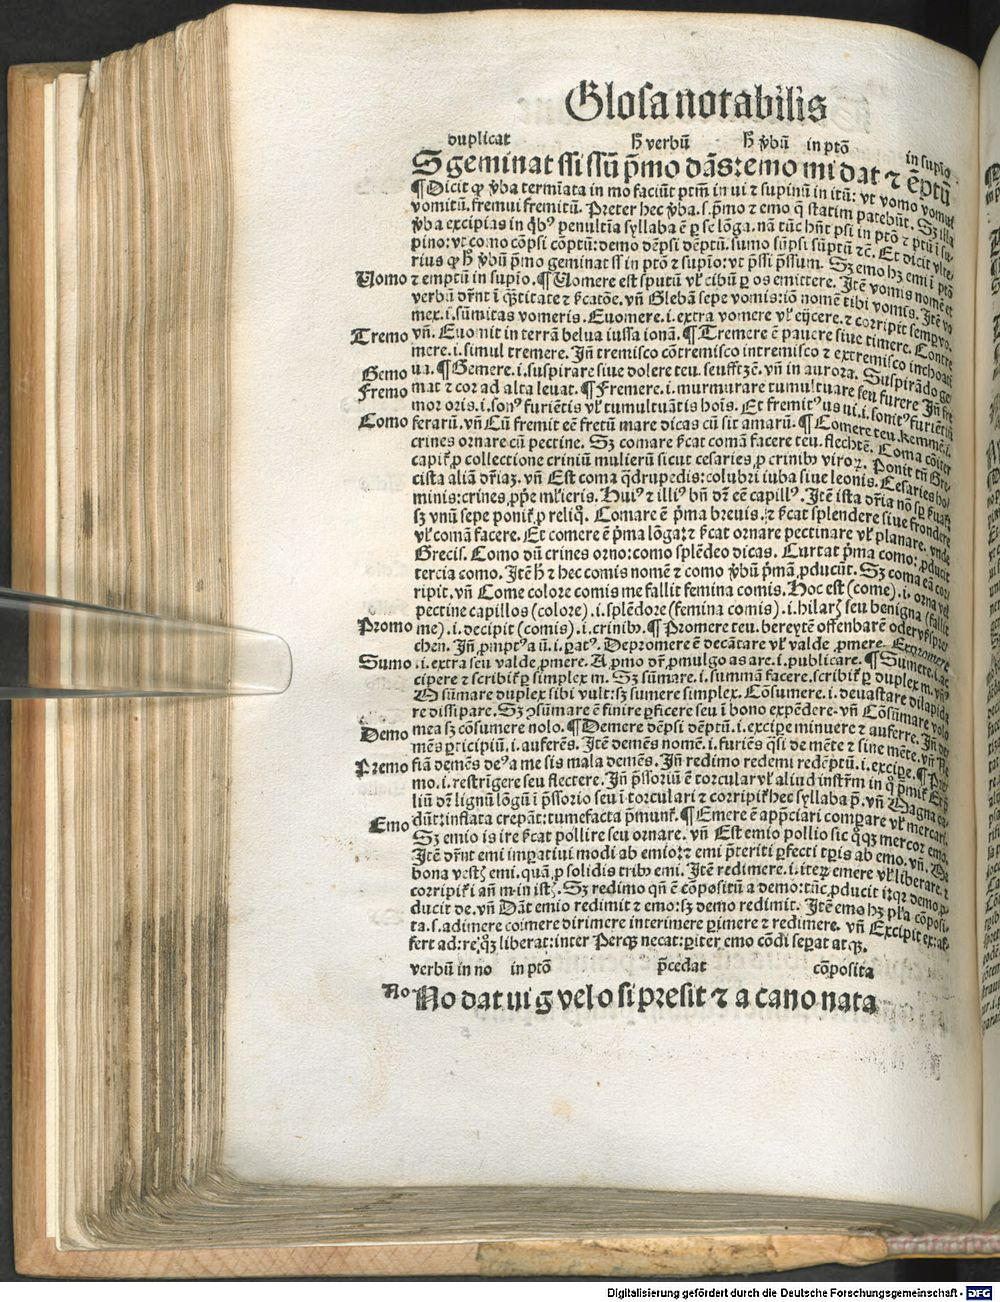 Glosa notabilis
duplicat h̄ verbū h̄ v̄bū in ptō in supīo
S geminat ſſi ſſū p̄mo dās: emo mi dat ⁊ ēptū
¶ Dicit ꝙ v̄ba termīata in mo faciūt ptm̄ in ui ⁊ supinū in itū: vt vomo vomui
vomitū. fremui fremitū. Preter hec v̄ba .s. p̄mo ⁊ emo q̄ statim patebūt. Sꝫ illa
v̄ba excipias in q̄bꝰ penultīa syllaba ē ꝑ se lōga. nā tūc hn̄t psi in ptō ⁊ ptū ī su-
pino: vt como cōpsi cōptū: demo dēpsi dēptū. sumo sūpsi sūptū ⁊c̄. Et dicit vlte-
rius ꝙ h̄ v̄bū p̄mo geminat ſſ in ptō ⁊ supīo: vt p̄ssi p̄ssum. Sꝫ emo hꝫ emi ī ptō
Uomo ⁊ emptū in supīo. ¶ Uomere est sputū vl̓ cibū ꝑ os emittere. Itē vomis nomē et
verbū dr̄nt ī q̄titate ⁊ ſcatōe. vn̄ Glebā sepe vomis: iō nomē tibi vomis. Itē vo
mex .i. sūmitas vomeris. Euomere .i. extra vomere vl̓ eijcere. ⁊ corripit semp vo.
Tremo vn̄. Euomit in terrā belua iussa ionā. ¶ Tremere ē pauere siue timere. Contre
mere .i. simul tremere. Jn̄ tremisco cōtremisco intremisco ⁊ extremisco inchoati
Gemo ua. ¶ Gemere .i. suspirare siue dolere teu. seufftzē. vn̄ in aurora. Suspirādo ge
Fremo mat ⁊ cor ad alta leuat. ¶ Fremere .i. murmurare tumultuare seu furere Jn̄ fre
mor oris .i. sonꝰ furiētis vl̓ tumultuātis hoīs. Et fremitꝰ us ui .i. sonitꝰ furiētiū
Como ferarū. vn̄ Cū fremit eē fretū mare dicas cū sit amarū. ¶ Comere teu. kemmē .i.
crines ornare cū pectine. Sꝫ comare ſcat comā facere teu. flechtē. Coma cōiter
capit̓ ꝓ collectione criniū mulierū sicut cesaries ꝓ crinibꝰ viroꝝ. Ponit tn̄ Gre
cista aliā dr̄iaꝫ. vn̄ Est coma q̄drupedis: colubri iuba siue leonis. Cesaries ho
minis: crines ꝓpe ml̓ieris. Huiꝰ ⁊ illiꝰ bn̄ dr̄ eē capillꝰ. Itē ista dr̄ia nō sꝑ ẜuat̓
sꝫ vnū sepe ponit̓ ꝓ reliq̊. Comare ē p̄ma breuis. ⁊ ſcat splendere siue frondere
vl̓ comā facere. Et comere ē p̄ma lōga: ⁊ ſcat ornare pectinare vl̓ planare. vnde
Grecis. Como dū crines orno: como splēdeo dicas. Curtat p̄ma como: ꝓducit
tercia como. Itē h̄ ⁊ hec comis nomē ⁊ como v̄bū p̄mā ꝓducūt. Sꝫ coma eā cor
ripit. vn̄ Come colore comis me fallit femina comis. Hoc est (come) .i. orna vel
pectine capillos (colore) .i. splēdore (femina comis) .i. hilarꝫ seu benigna (fallit
Promo me) .i. decipit (comis) .i. crinibꝰ. ¶ Promere teu. bereytē offenbarē oder vßspre
chen. Jn̄ ꝓmptꝰ a ū .i. ꝑatꝰ. Depromere ē decātare vl̓ valde ꝓmere. Expromere
Sumo .i. extra seu valde ꝓmere. A ꝓmo dr̄ ꝓmulgo as are .i. publicare. ¶ Sumere .i. ac
cipere ⁊ scribit̓ ꝑ simplex m. Sꝫ sūmare .i. summā facere. scribit̓ ꝑ duplex m. vn̄
sūmare duplex sibi vult: sꝫ sumere simplex. Cōsumere .i. deuastare dilapida
re dissipare. Sꝫ ꝯsūmare ē finire ꝑficere seu ī bono expēdere. vn̄ Cōsūmare volo
Demo mea sꝫ cōsumere nolo. ¶ Demere dēpsi dēptū .i. excipe minuere ⁊ auferre. Jn̄ de
mēs ꝑticipiū .i. auferēs. Itē demēs nomē .i. furiēs q̄si de mēte ⁊ sine mēte. vn̄ Re
Premo fiā demēs deꝰ a me sis mala demēs. Jn̄ redimo redemi redēptū .i. excipe. ¶ Pre
mo .i. restrīgere seu flectere. Jn̄ p̄ssoriū ē torcular vl̓ aliud instr̄m in q̊ p̄mit̓
liū dr̄ lignū lōgū ī p̄ssorio seu ī torculari ⁊ corripit̓ hec syllaba p̄. vn̄ Magna ca
Emo dūt: inflata crepāt: tumefacta p̄munt̓. ¶ Emere ē app̄ciari comparare vl̓ mercari.
Sꝫ emio is ire ſcat pollire seu ornare. vn̄ Est emio pollio sic q̊ꝫ mercor emo.
Itē dr̄nt emi imꝑatiui modi ab emio: ⁊ emi p̄teriti ꝑfecti tꝑis ab emo. vn̄. De
bona vestꝫ emi. quā ꝓ solidis tribꝰ emi. Itē redimere .i. iteꝝ emere vl̓ liberare. ⁊
corripit̓ i an̄ m in istꝫ. Sꝫ redimo qn̄ ē cōpositū a demo: tūc ꝓducit iꝫ qꝛ demo ꝓ-
ducit de. vn̄ Dāt emio redimit ⁊ emo: sꝫ demo redimit. Itē emo hꝫ pl̓a cōposi-
ta .s. adimere coimere dirimere interimere ꝑimere ⁊ redimere. vn̄ Excipit ex: au
fert ad: re: qꝫ liberat: inter Perqꝫ necat: ꝑiter emo cōdi seꝑat atqꝫ.
verbū in no in ptō p̄cedat cōposita
No No dat ui g vel o si presit ⁊ a cano nata
Digitalisierung gefördert durch die Deutsche Forschungsgemeinschaft - DFG